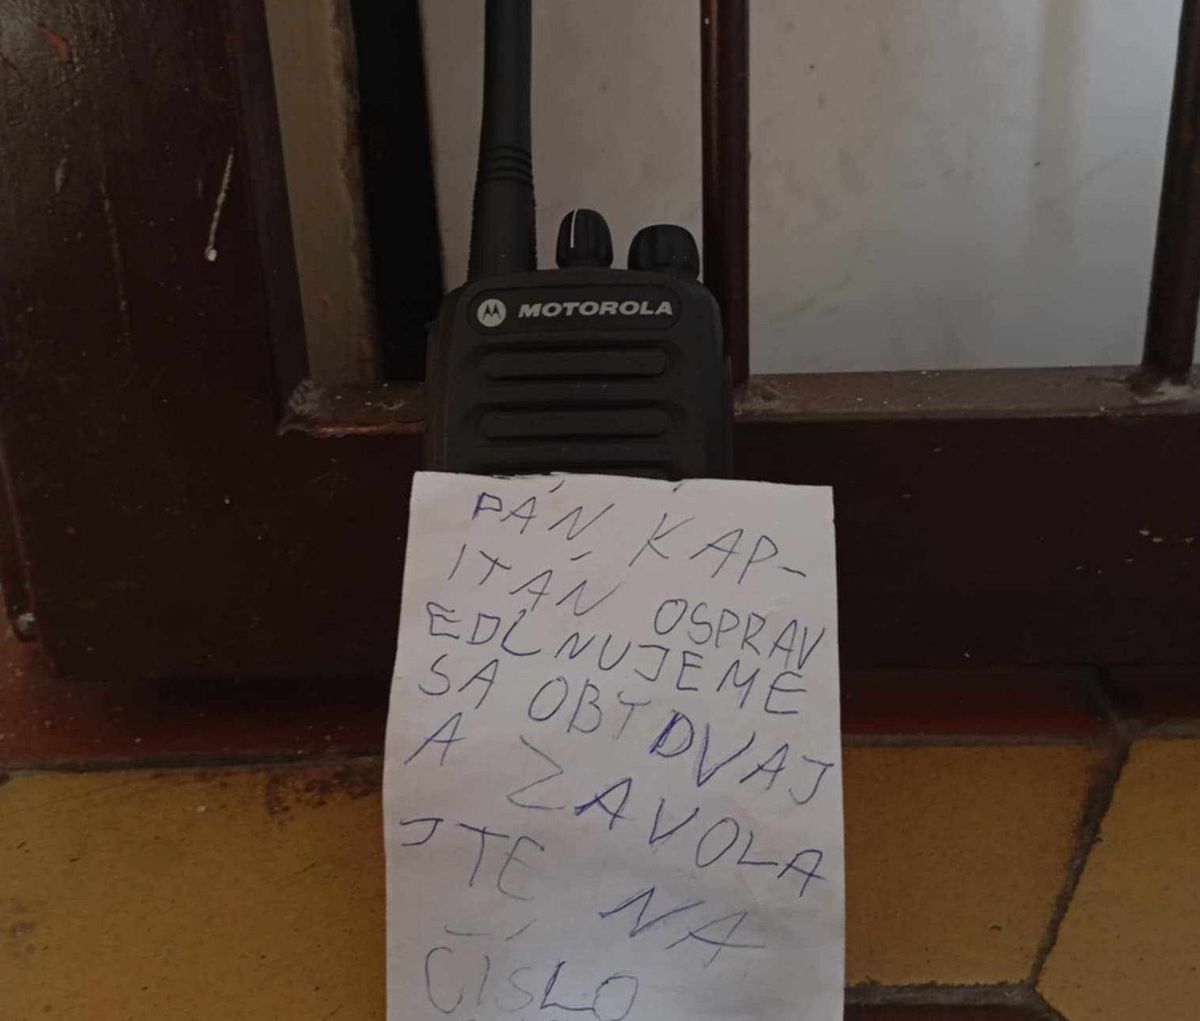 MOTOROLA
PÁN KAP-
ITÁN OSPRAV
EDLNUJEME
SA OBTDVAJ
A ZAVOLA
JTE NA
ČÍSLO